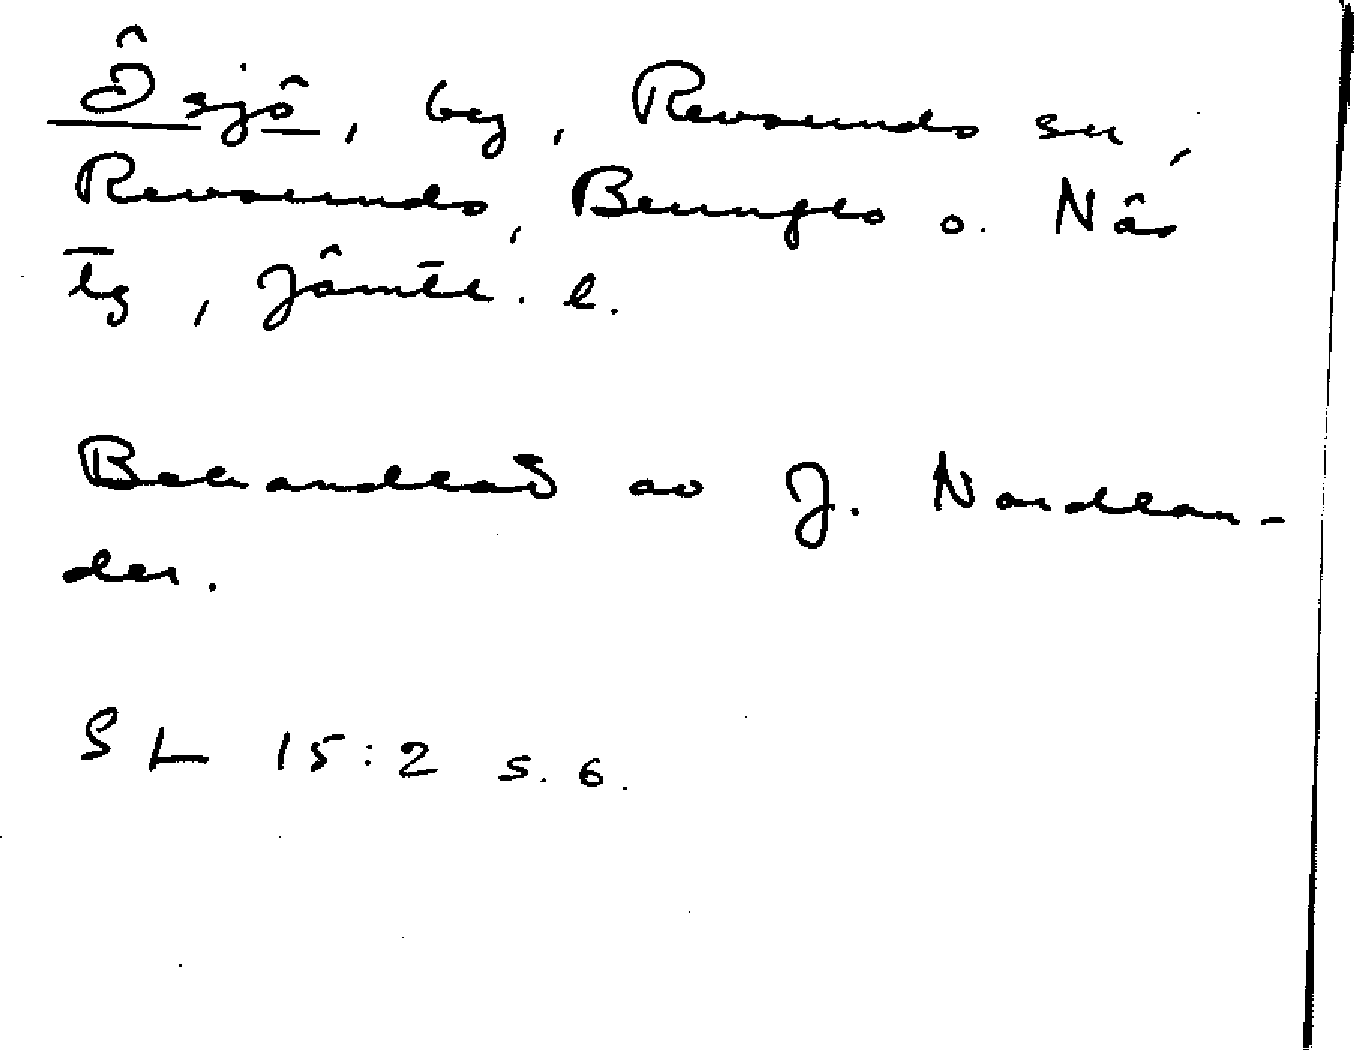 Ösjö, by, Revsunds sn,
Revsunds, Brunflo o. Näs
tg, Jämtl. l.
Behandlat av J. Nordlan-
der.
SL 15:2 s. 6.